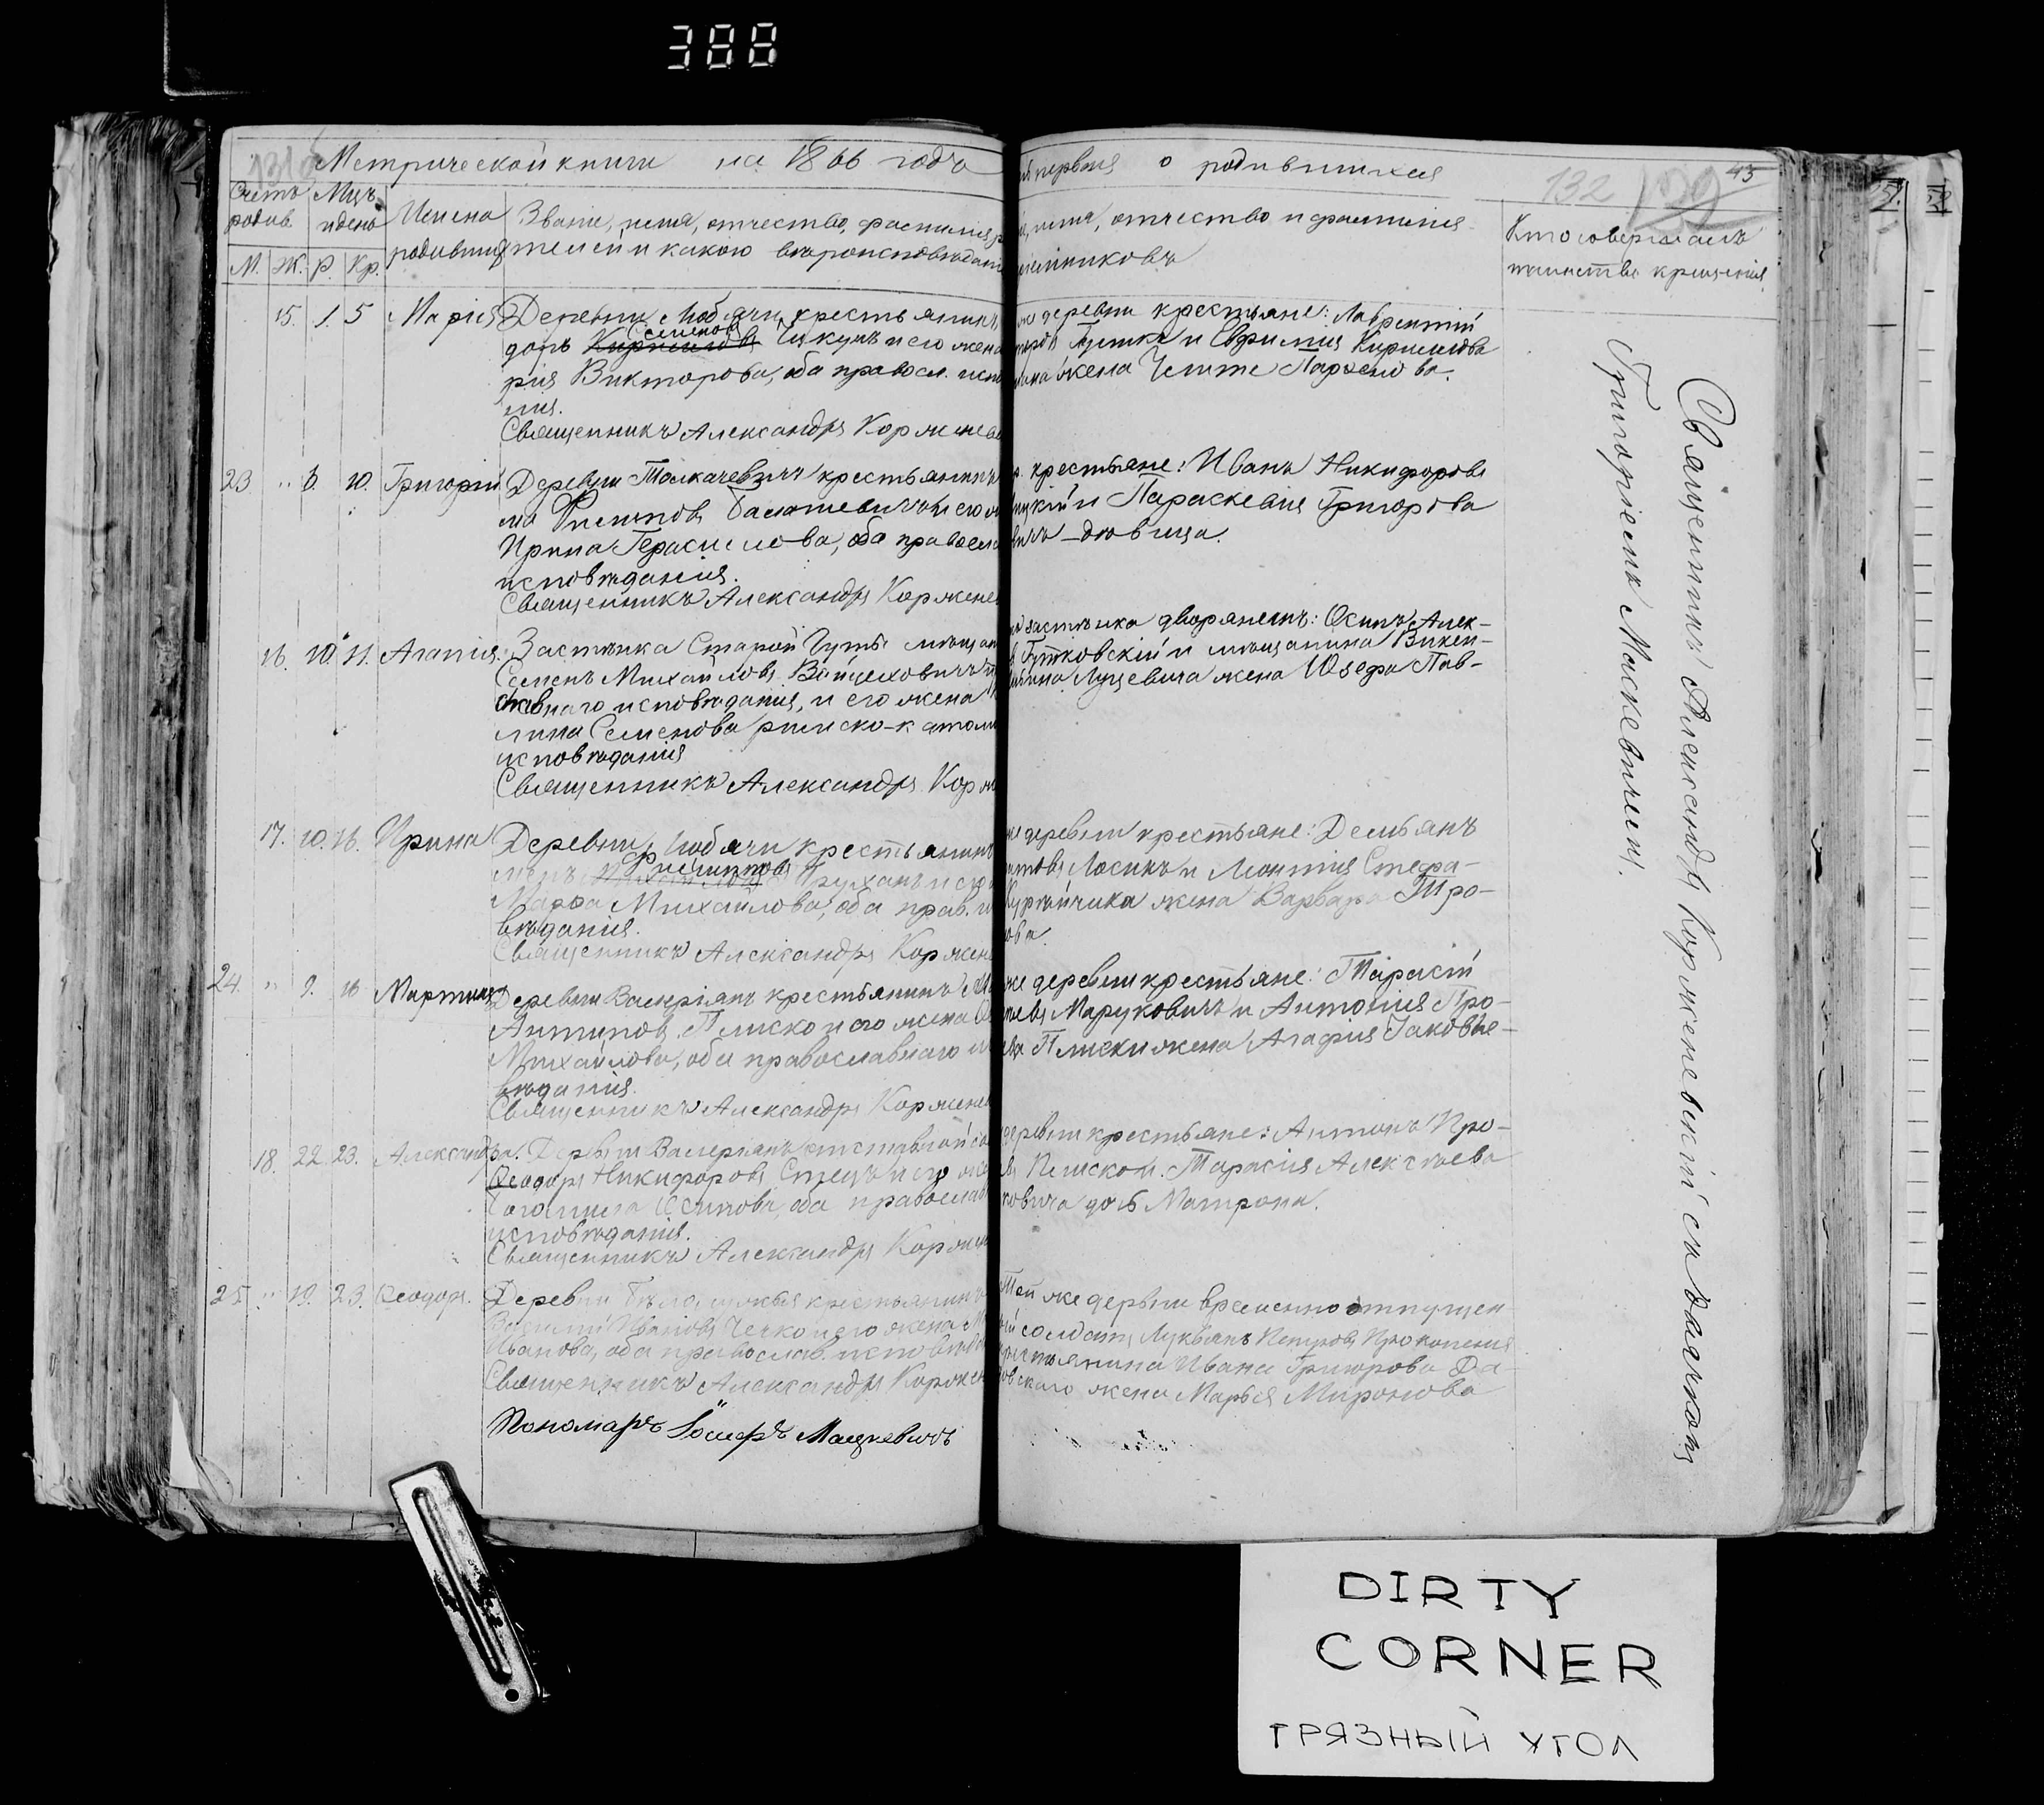 388
Метрической книги на 1866 годъ
Счетъ родив.
Мцъ и день
Имена родивших
Званіе, имя, отчество, фамилія р
телей и какого вѣроисповѣдан
М. Ж. Р. Кр.
15. 1. 5 Марія Деревни Любячи крестьянинъ
Семеновъ
доръ Кирилловъ Цикунъ и его жена
рія Викторова, оба правосл. испо
нія.
Священникъ Александръ Корженев
23 " 6. 10. Григорій Деревни Толкачевичъ крестьянинъ
Филиповъ и его
Ирина Герасимова, оба правосла
исповѣданія.
Священникъ Александръ Коржене
16. 10. 11. Агапія. Застѣнка Старой Гуты мѣщан
Семенъ Михайловъ Войцеховичъ п
славнаго исповѣданія, и его жена
лина Семенова римско-католи
исповѣданія
Священникъ Александръ Корж
17. 10. 16. Ирина Деревни Любячи крестьянинъ
Филиповъ
Труханъ и его
Марѳа Михайлова, оба прав. и
вѣданія.
Священникъ Александръ Коржен
24. " 9. 16 Мартинъ Деревни Валеріянъ крестьянинъ
Антиповъ Плиско и его жена
Михайлова, оба православнаго и
вѣданія.
Священникъ Александръ Коржене
18. 22. 23. Александра. Деревни Валеріянъ отставной со
Ѳеодоръ Никифоровъ Стецъ и его же
Осипова, оба православ
исповѣданія.
Священникъ Александръ Корже
25. " 19. 23. Ѳеодоръ. Деревни крестьянинъ
Василій Ивановъ Чечко и его жена
Иванова, оба православ. исповѣда
Священникъ Александръ Коржен
Пономарь Іосифъ Мацкевичъ
первая о родившихся
132 129 43
имя, отчество и фамилія
емниковъ
Кто совершалъ
таинство крещенія
же деревни крестьяне: Лаврентій
и Евфимія Кириллова
жена Пархемова.
крестьяне: Иванъ Никифоровъ
цкій и Параскевія Григорова
вичъ - дѣвица.
застѣнка дворянинъ: Осипъ Алек-
Гутковскій и мѣщанина Викен-
Луцевича жена Юзефа Пав-
же деревни крестьяне: Демьянъ
Лосикъ и Леонтія Стефа-
жена Варвара Тро-
ова.
же деревни крестьяне: Тарасій
Маруковичъ и Антонія Про-
Плиски жена Агафія Іаковле-
деревни крестьяне: Антонъ Про-
Плиско и Тарасія Алексѣева
ковича дочь Матрона.
Той же деревни временно отпущен-
ый солдатъ Лукьянъ Петровъ Прокопеня
крестьянина Ивана Григорова Да-
жена Марья Миронова
Священникъ Александръ Корженевскій съ дьячкомъ
Григоріемъ Маскевичемъ.
DIRTY
CORNER
ГРЯЗНЫЙ УГОЛ